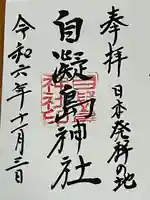 奉拝
日本発祥の地
自凝島神社
令和六年十一月三日